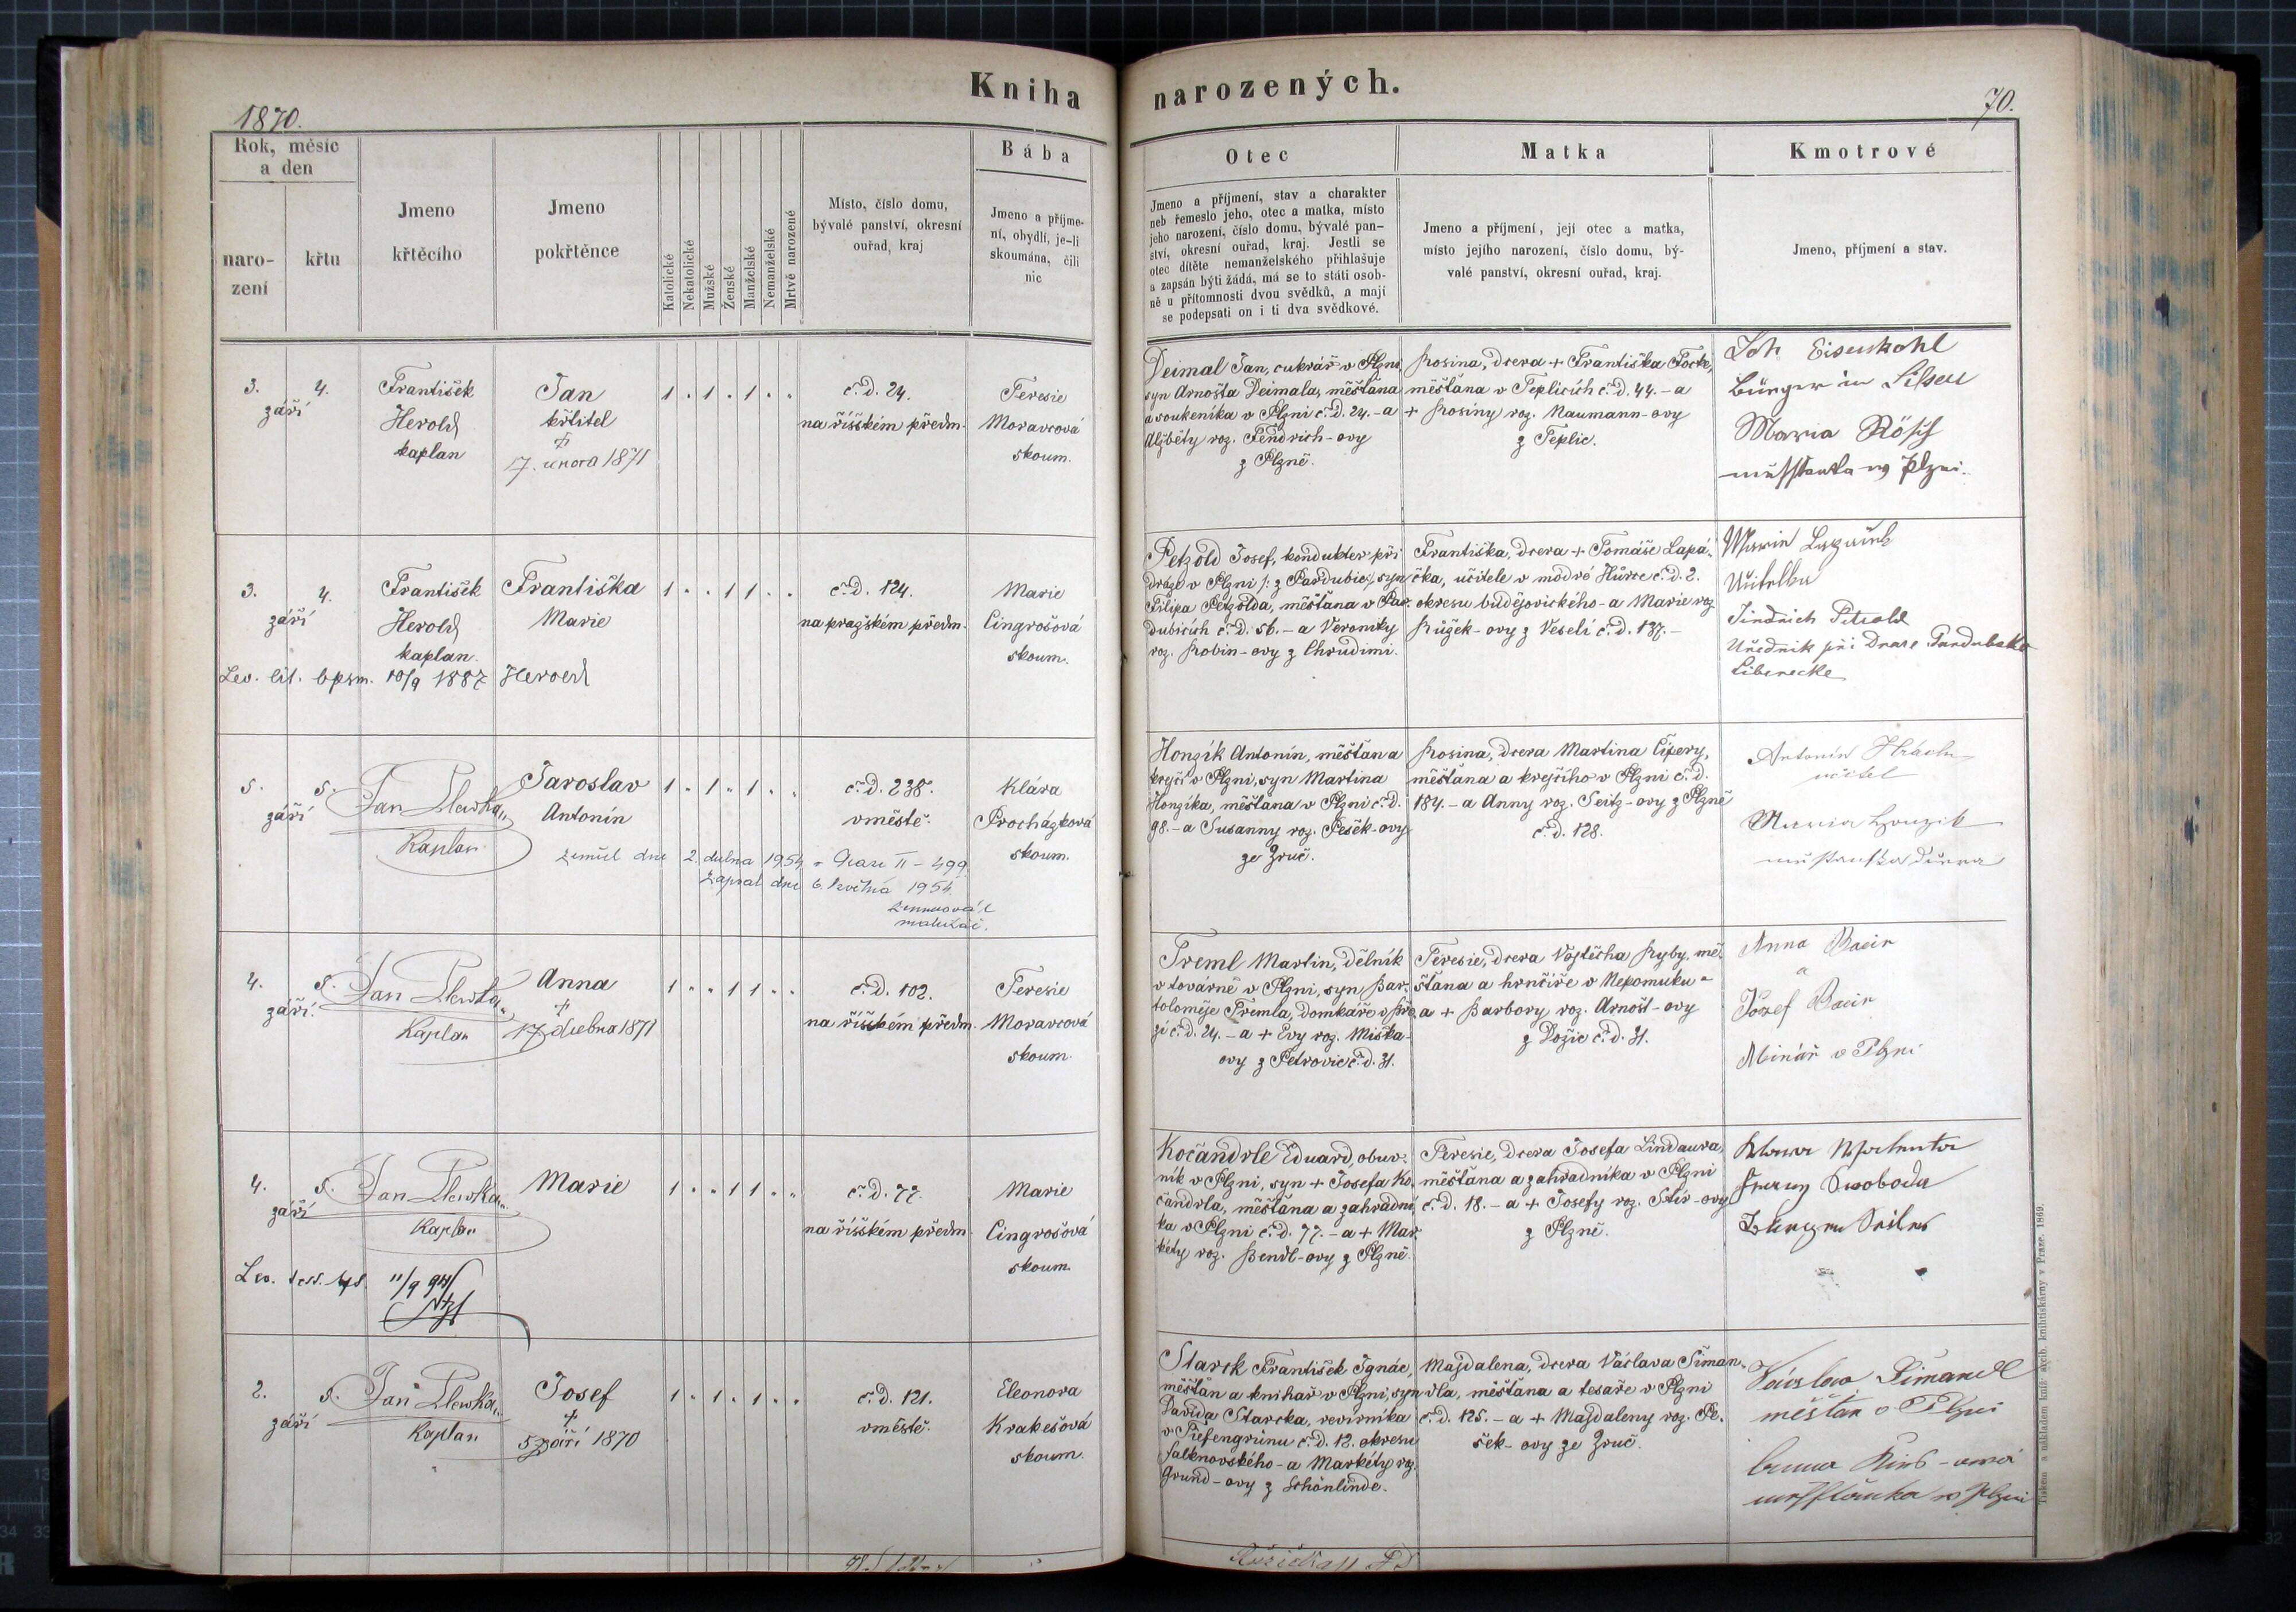 Kniha narozených.
1870.
70.
Rok, měsíc
a den
naro-
zení
křtu
Jmeno
křtěcího
Jmeno
pokřtěnce
Katolické
Nekatolické
Mužské
Ženské
Manželské
Nemanželské
Mrtvě narozené
Místo, číslo domu,
bývalé panství, okresní
ouřad, kraj
Bába
Jmeno a příjme-
ní, obydlí, je-li
skoumána, čili
nic
Otec
Jmeno a příjmení, stav a charakter
neb řemeslo jeho, otec a matka, místo
jeho narození, číslo domu, bývalé pan-
ství, okresní ouřad, kraj. Jestli se
otec dítěte nemanželského přihlašuje
a zapsán býti žádá, má se to státi osob-
ně u přítomnosti dvou svědků, a mají
se podepsati on i ti dva svědkové.
Matka
Jmeno a příjmení, její otec a matka,
místo jejího narození, číslo domu, bý-
valé panství, okresní ouřad, kraj.
Kmotrové
Jmeno, příjmení a stav.
3. 4.
září
František
Herold
kaplan
Jan
křtitel
†
17. února 1871
1 " 1 " 1 " "
č. d. 24.
na říšském předm.
Teresie
Moravcová
skoum.
Deimal Jan, cukrář v Plzni,
syn Arnošta Deimala, měšťana
a soukeníka v Plzni č. d. 24. - a
Alžběty roz. Fendrich-ovy
z Plzně.
Rosina, dcera + Františka
měšťana v Teplicích č. d. 44. - a
+ Rosiny roz. Naumann-ovy
z Teplic.
Joh Eisenkohl
Bürger in Pilsen
Maria Rösch
3. 4.
září
František
Herold
kaplan.
Františka
Marie
1 " " 1 1 " "
č. d. 124.
na pražském předm.
Marie
Cingrošová
skoum.
Lev. lit. bpsm. 10/9 1887 Herold
Petzold Josef, kondukter při
dráze v Plzni /: z Pardubic :/, syn
Filipa Petzolda, měšťana v Par-
dubicích č. d. 56. - a Veroniky
roz. Robin-ovy z Chrudimi.
Františka, dcera + Tomáše Lapá-
čka, učitele v modré Hůrce č. d. 2.
okresu budějovického - a Marie roz.
Růžek-ovy z Veselí č. d. 137. -
Jindřich Petzold
Uředník při Draze Pardubsko
Liberecke
5. 5.
září
Jan Plewka
Kaplan
Jaroslav
Antonín
1 " 1 " 1 " "
č. d. 238.
v městě.
Klára
Procházková
skoum.
zemřel dne 2. dubna 1954 II - 499
zapsal dne 6. května 1954
matrikář.
Honzík Antonín, měšťan a
krejčí v Plzni, syn Martina
Honzíka, měšťana v Plzni č. d.
98. - a Susanny roz. Pešek-ovy
ze Zruč.
Rosina, dcera Martina Čipery,
měšťana a krejčího v Plzni č. d.
184. - a Anny roz. Seitz-ovy z Plzně
č. d. 128.
Antonín
učitel
Maria Honzik
4. 5.
září.
Jan Plewka
Kaplan
Anna
†
17 1871
1 " " 1 1 " "
č. d. 102.
na říšském předm.
Teresie
Moravcová
skoum.
Treml Martin, dělník
v továrně v Plzni, syn Bar-
toloměje Tremla, domkáře v Bře-
zí č. d. 24. - a + Evy roz. Miška-
ovy z Petrovic č. d. 31.
Teresie, dcera Vojtěcha Ryby, mě-
šťana a hrnčíře v Nepomuku -
a + Barbory roz. Arnošt-ovy
z Dožic č. d. 31.
Anna Baeir
a
Jozef Baeir
Mlinář v Plzni
4. 5.
září
Jan Plewka
Kaplan
Marie
1 " " 1 1 " "
č. d. 77.
na říšském předm.
Marie
Cingrošová
skoum.
11/9
Kočandrle Eduard, obuv-
ník v Plzni, syn + Josefa Ko-
čandrla, měšťana a zahradní-
ka v Plzni č. d. 77. - a + Mar-
kéty roz. Bendl-ovy z Plzně.
Teresie, dcera Josefa Lindaura,
měšťana a zahradníka v Plzni
č. d. 18. - a + Josefy roz. Stir-ovy
z Plzně.
Swoboda
2. 5.
září
Jan Plewka
Kaplan
Josef
†
5 září 1870
1 " 1 " 1 " "
č. d. 121.
v městě.
Eleonora
Krakešová
skoum.
Starck František Ignác,
měšťan a knihař v Plzni, syn
Davida Starcka, revírníka
v Tiefengrünu č. d. 12. okresu
falknovského - a Markéty roz.
Grund-ovy z Schönlinde.
Majdalena, dcera Václava Šiman-
dla, měšťana a tesaře v Plzni
č. d. 125. - a + Majdaleny roz. Pe-
šek-ovy ze Zruč.
Václav Šimandl
měšťan v Plzni
Tiskem a nákladem knihtiskárny v Praze. 1869.